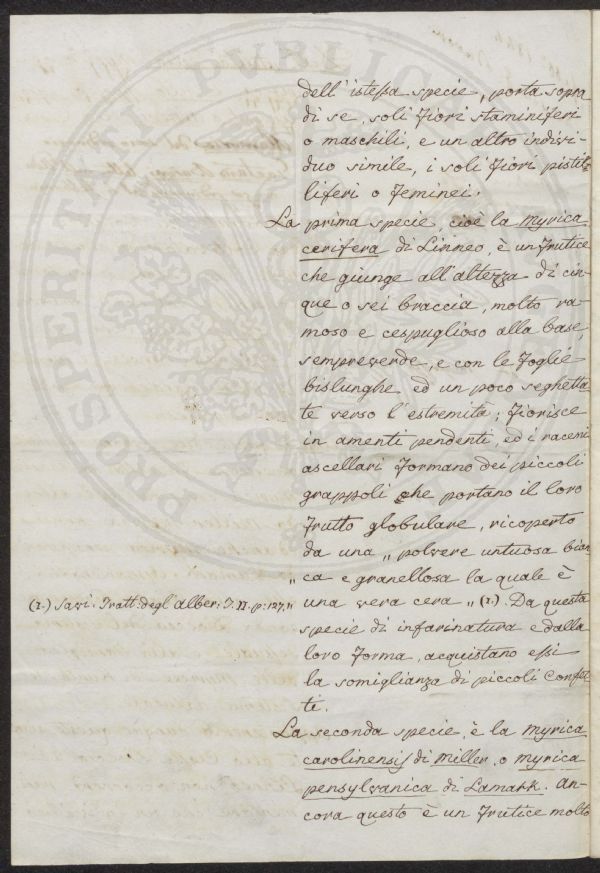 dell' istessa specie, porta sopra
di se, soli Fiori staminiferi
o maschili, e un altro indivi-
duo simile, i soli Fiori pistil-
liferi o Feminei.
La prima specie, cioè la Myrica
cerifera di Linneo, è un Frutice
che giunge all' altezza di cin-
que o sei braccia, molto ra-
moso e cespuglioso alla base,
sempreverde, e con le Foglie
bislunghe ed un poco seghetta
te verso l' estremità; Fiorisce
in amenti pendenti, ed i racemi
ascellari Formano dei piccoli
grappoli che portano il loro
Frutto globulare, ricoperto
da una „ polvere untuosa bian
„ ca e granellosa la quale è
(1.) Savi. Tratt. degl' alber: T. II. p: 127,,
una vera cera „ (1.). Da questa
specie di infarinatura e dalla
loro Forma, acquistano essi
la somiglianza di piccoli Confet-
ti.
La seconda specie, è la Myrica
carolinensis di Miller, o Myrica
pensylvanica di Lamark. An-
cora questo è un Frutice molto